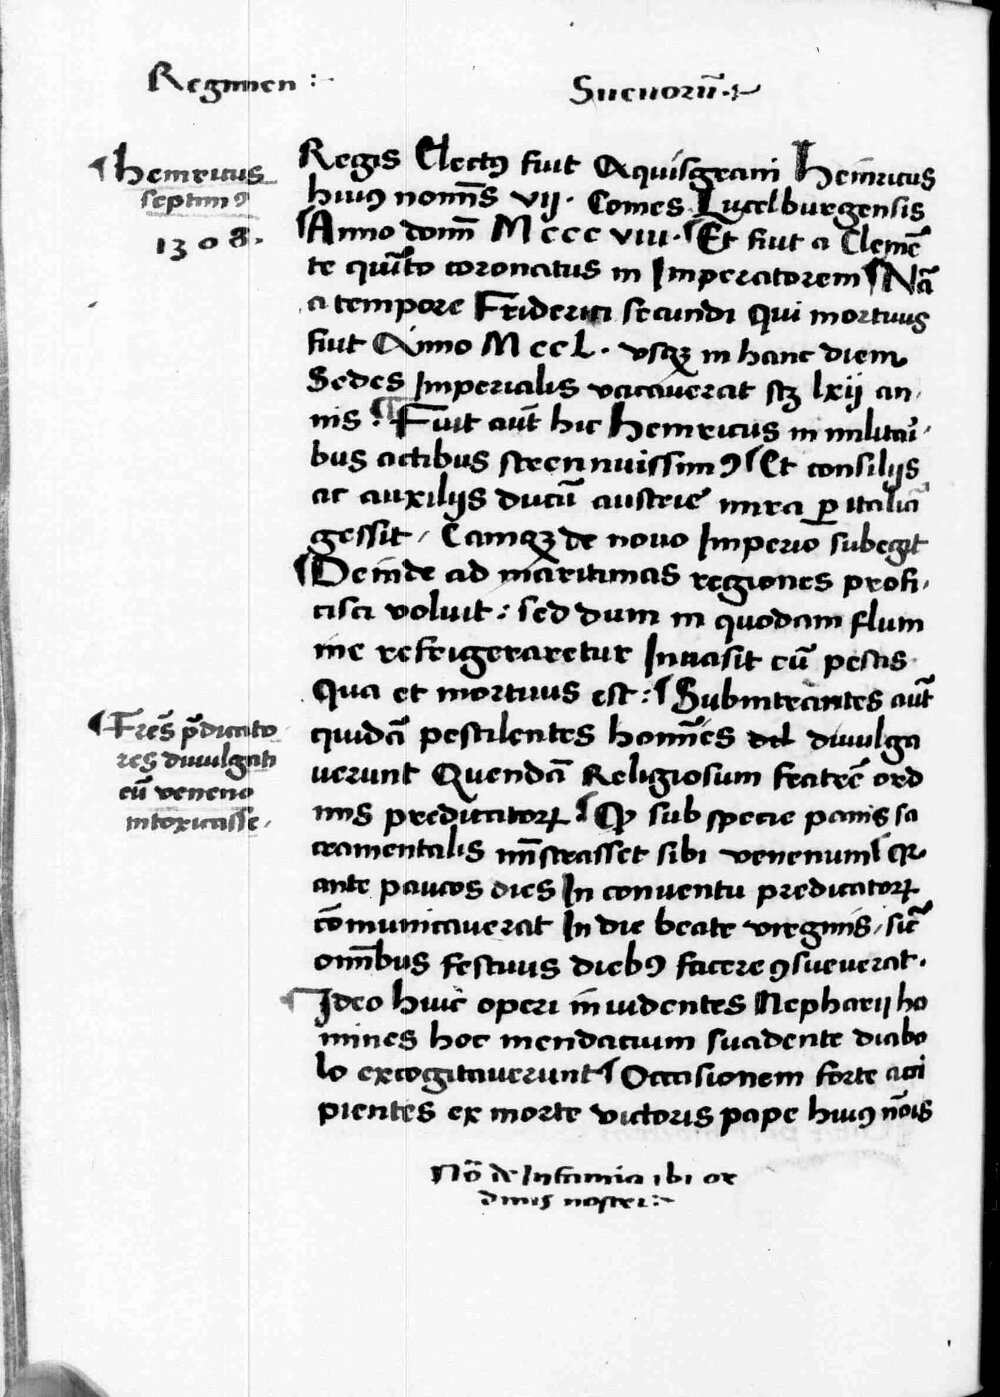 Regimen :~
Sueuorū.:~
¶ Heinricus
septim9
1308.
Regis Elect9 fuit Aquisgrani Heinricus
hui9 nomīs VIJ. Comes Lucelburgensis
¶ Anno domī M ccc viii. ¶ Et fuit a Clemē
te quīto coronatus in Imperatorem ¶ Nā
a tempore Friderici secundi Qui mortuus
fuit Anno M cc L. vsqꝫ in hanc diem
Sedes Imperialis vacauerat scꝫ lxij an
nis. ¶ Fuit aūt hic Heinricus in militari
bus actibus strennuissim9 ¶ Et consilijs
ac auxilijs ducū austrie mira ꝑ italiā
gessit. Eamqꝫ de nouo Imperio subegit
¶ Deinde ad maritimas regiones profi
cisci voluit: sed dum in quodam flum
ine refrigeraretur Inuasit eū pestis
Qua et mortuus est: ¶ Subintrantes aūt
quidā pestilentes homīes del diuulga
uerunt Quendā Religiosum fratrē ord
inis predicatorꝝ ¶ Qꝫ sub specie panis sa
cramentalis mīstrasset sibi venenum ¶ qꝛ
ante paucos dies In conuentu predicatorꝝ
cōmunicauerat In die beate virginis, sic̄
omībus festiuis dieb9 facere 9sueuerat.
¶ Ideo huic operi inuidentes Nepharij ho
mines hoc mendacium suadente diabo
lo excogitauerunt ¶ Occasionem forte acci
pientes ex morte victoris pape hui9 nōis
¶ Frēs p̄dicato
res diuulgati
eū veneno
intoxicasse.
Nō de Infamia ibi or
dinis nostri:~